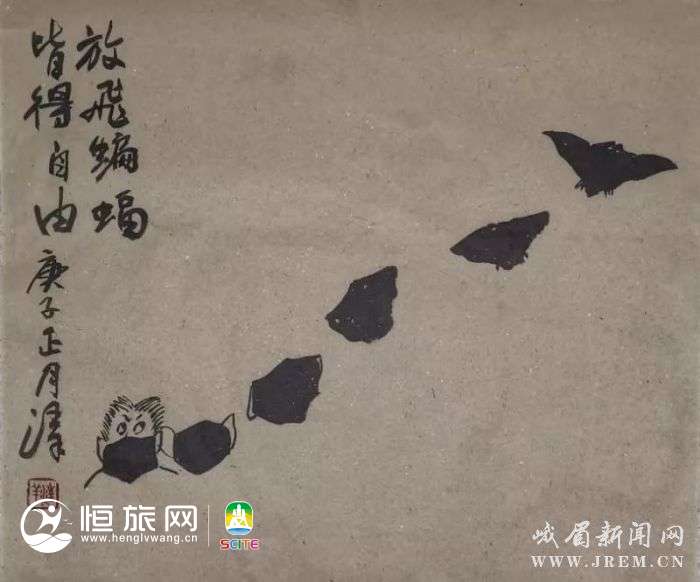 放飛蝙蝠
皆得自由 庚子正月
恒旅网
www.henglvwang.cn
SCITE
峨眉新闻网
WWW.JREM.CN